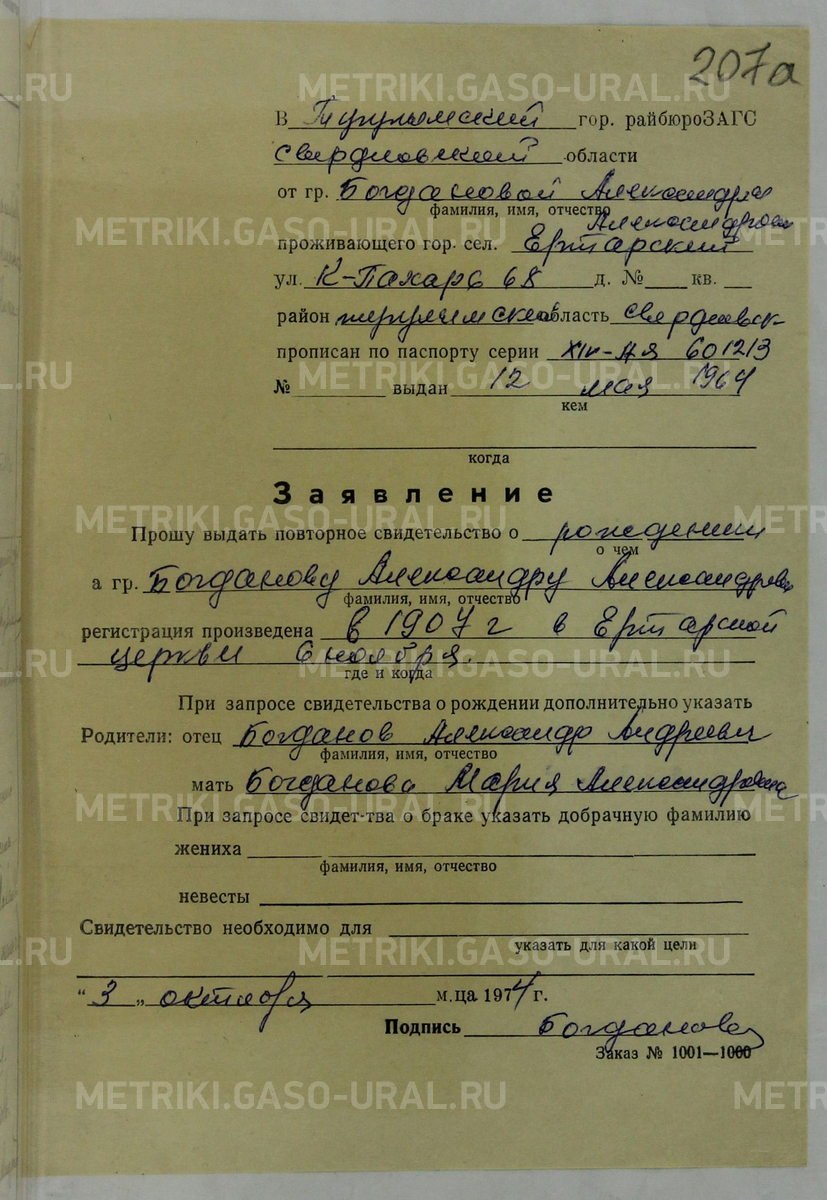 207а
В Тугулымский гор. райбюроЗАГС
Свердловский области
от гр. Богдановой Александры
фамилия, имя, отчество
Александровны
проживающего гор. сел. Ертарский
ул. К-Пахарь 68 д. № кв.
район тугулымский область свердловск
прописан по паспорту серии XIV-АЯ 601213
№ выдан 12 мая 1964
кем
когда
Заявление
Прошу выдать повторное свидетельство о рождении
о чем
а гр. Богданову Александру Александровну
фамилия, имя, отчество
регистрация произведена в 1907 г в Ертарской
церкви 6 ноября.
где и когда
При запросе свидетельства о рождении дополнительно указать
Родители: отец Богданов Александр Андреевич
фамилия, имя, отчество
мать Богданова Мария Александровна
При запросе свидет-тва о браке указать добрачную фамилию
жениха
фамилия, имя, отчество
невесты
Свидетельство необходимо для
указать для какой цели
"3" октября м.ца 1974 г.
Подпись Богданова
Заказ № 1001—1000
METRIKI.GASO-URAL.RU